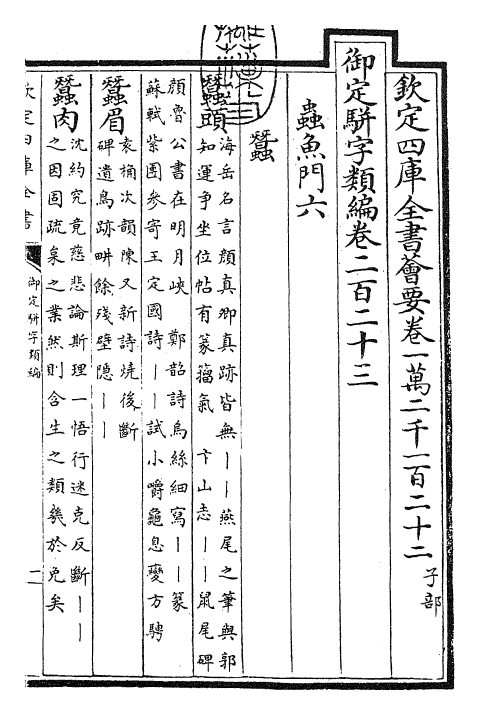 欽定四庫全書薈要卷一萬二千一百二十二 子部
御定駢字類編卷二百二十三
蟲魚門六
蠶
蠶頭 海岳名言顔真卿真跡皆無丨丨燕尾之筆與郭
知運爭坐位帖有篆籀氣 卞山志丨丨鼠尾碑
顔魯公書在明月峽 鄭韶詩烏絲細寫丨丨篆
蘇軾紫團參寄王定國詩丨丨試小嚼龜息變方騁
蠶眉 袁桷次韻陳又新詩燒後斷
碑遺鳥跡畊餘殘壁隠丨丨
蠶肉 沈約究竟慈悲論斯理一悟行迷克反斷丨丨
之因固疏枲之業然則含生之類幾於免矣
欽定四庫全書
御定駢字類編